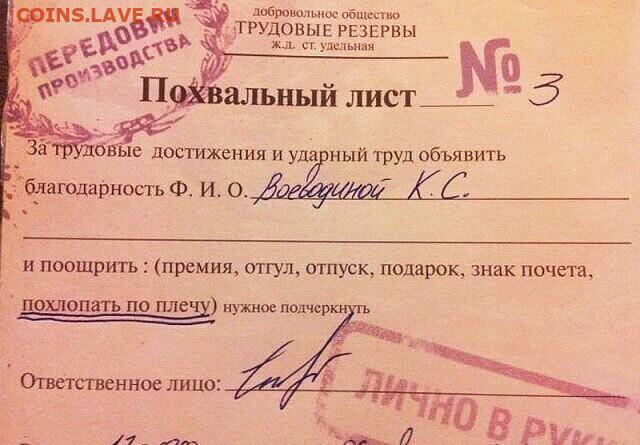 COINS.LAVE.RU
ПЕРЕДОВИК
ПРОИЗВОДСТВА
добровольное общество
ТРУДОВЫЕ РЕЗЕРВЫ
ж.д. ст. удельная
Похвальный лист № 3
За трудовые достижения и ударный труд объявить
благодарность Ф. И. О. Воеводиной К. С.
и поощрить : (премия, отгул, отпуск, подарок, знак почета,
похлопать по плечу) нужное подчеркнуть
Ответственное лицо:
ЛИЧНО В РУКИ